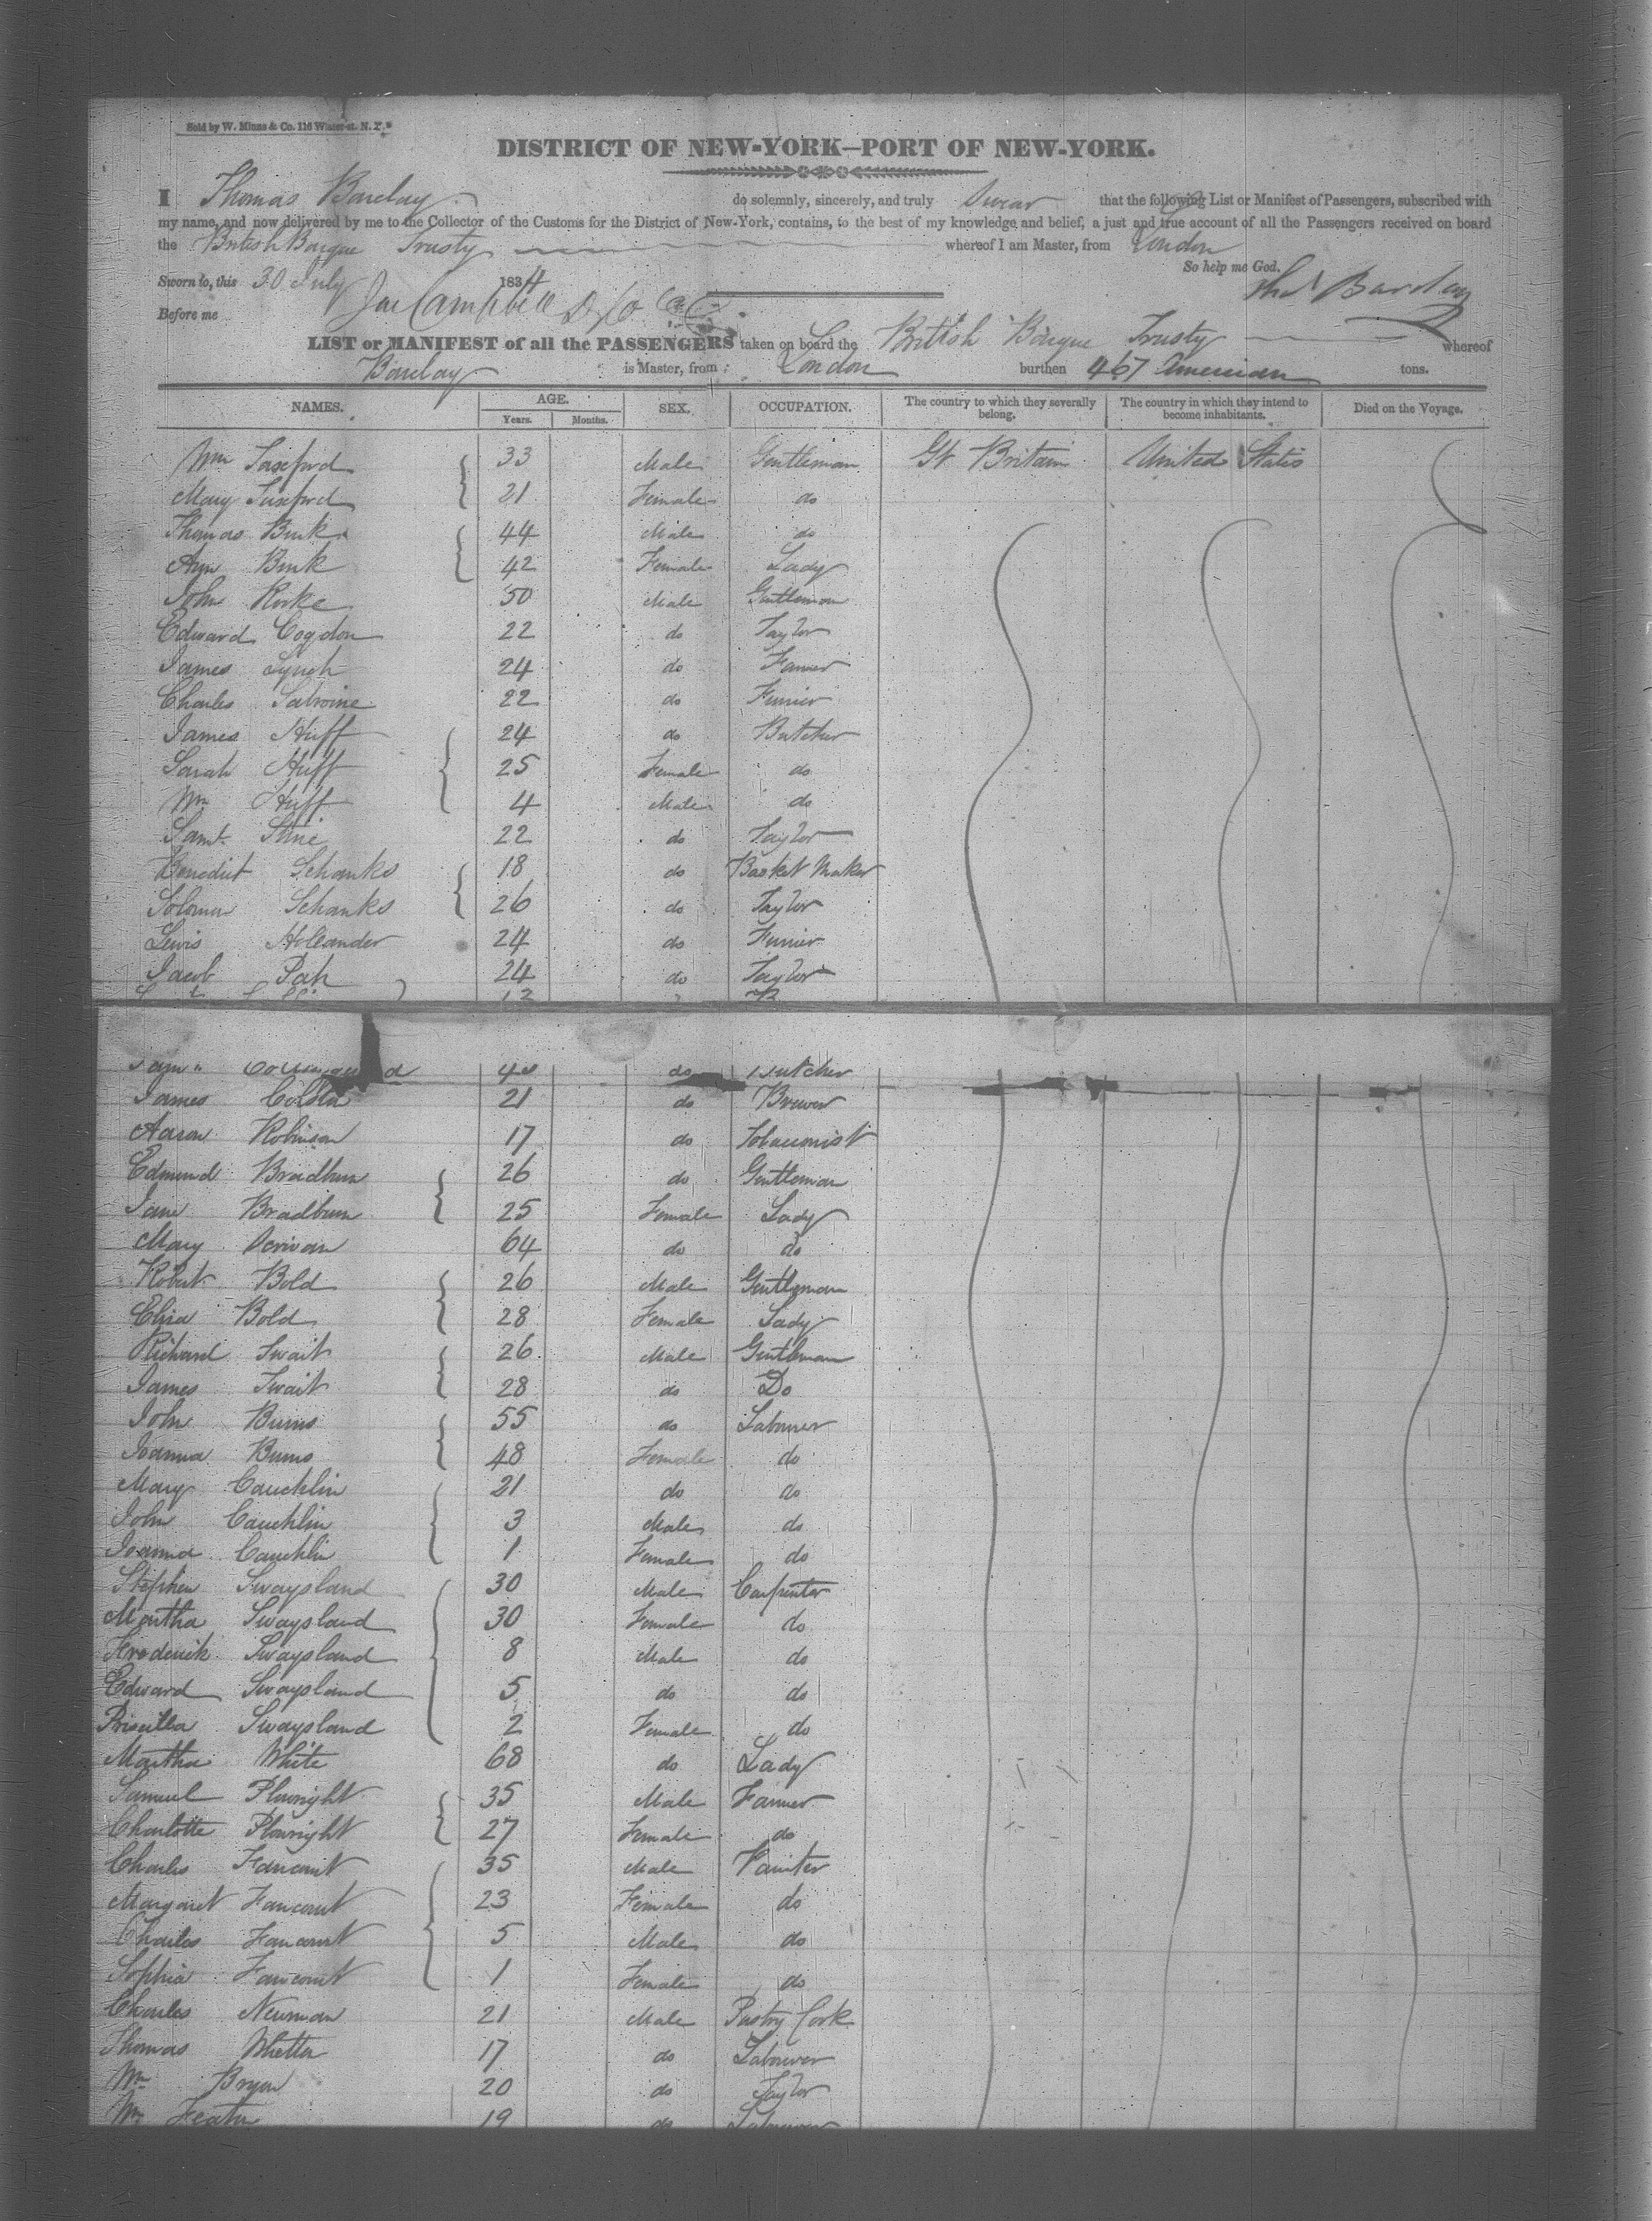 Sold by W. Minns & Co. 116 Water-st. N. Y.
DISTRICT OF NEW-YORK—PORT OF NEW-YORK.
I Thomas Barclay do solemnly, sincerely, and truly Swear that the following List or Manifest of Passengers, subscribed with
my name, and now delivered by me to the Collector of the Customs for the District of New-York, contains, to the best of my knowledge and belief, a just and true account of all the Passengers received on board
the British Barque Trusty whereof I am Master, from London
So help me God.
Sworn to, this 30 July 1834 Thos Barclay
Before me Jas Campbell
LIST or MANIFEST of all the PASSENGERS taken on board the British Barque Trusty whereof
Barclay is Master, from London burthen 467 American tons.
NAMES. AGE. SEX. OCCUPATION. The country to which they severally belong. The country in which they intend to become inhabitants. Died on the Voyage.
Years. Months.
Wm 33 Male Gentleman Gt Britain United States
Mary 21 Female do
Thomas 44 Male do
Ann 42 Female Lady
John Rorke 50 Male Gentleman
Edward Cogdon 22 do Taylor
James Lynch 24 do Farmer
Charles 22 do Furrier
James Huff 24 do Butcher
Sarah Huff 25 Female do
Wm Huff 4 Male do
Saml 22 do Taylor
Benedict Schanks 18 do Basket Maker
Solomon Schanks 26 do Taylor
Lewis Hollander 24 do Furrier
Jacob 24 do Taylor
do Butcher
James 21 do Brewer
Aaron Robinson 17 do Tobacconist
Edmund Bradburn 26 do Gentleman
Jane Bradburn 25 Female Lady
Mary Scrivan 64 do do
Robert Bold 26 Male Gentleman
Eliza Bold 28 Female Lady
Richard Swait 26 Male Gentleman
James Swait 28 do Do
John Burns 55 do Labourer
Joanna Burns 48 Female do
Mary Cauchlin 21 do do
John Cauchlin 3 Male do
Joanna Cauchlin 1 Female do
Stephen Swaysland 30 Male Carpenter
Martha Swaysland 30 Female do
Frederick Swaysland 8 Male do
Edward Swaysland 5 do do
Priscilla Swaysland 2 Female do
Martha White 68 do Lady
Samuel Plowright 35 Male Farmer
Charlotte Plowright 27 Female do
Charles Fancourt 35 Male Painter
Margaret Fancourt 23 Female do
Charles Fancourt 5 Male do
Sophia Fancourt 1 Female do
Charles Newman 21 Male Pastry Cook
Thomas Whetton 17 do Labourer
Wm Bryon 20 do Taylor
Wm 19 do Labourer